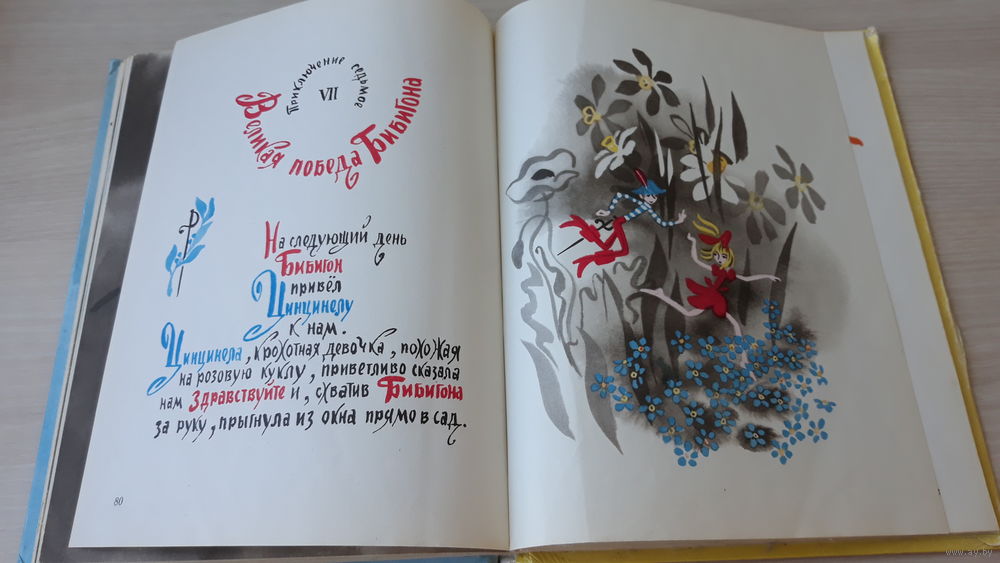 Приключение седьмое
VII
Великая победа Бибигона
На следующий день
Бибигон
привёл
Цинцинелу
к нам.
Цинцинела, крохотная девочка, похожая
на розовую куклу, приветливо сказала
нам Здравствуйте и, схватив Бибигона
за руку, прыгнула из окна прямо в сад.
80
www.ay.by